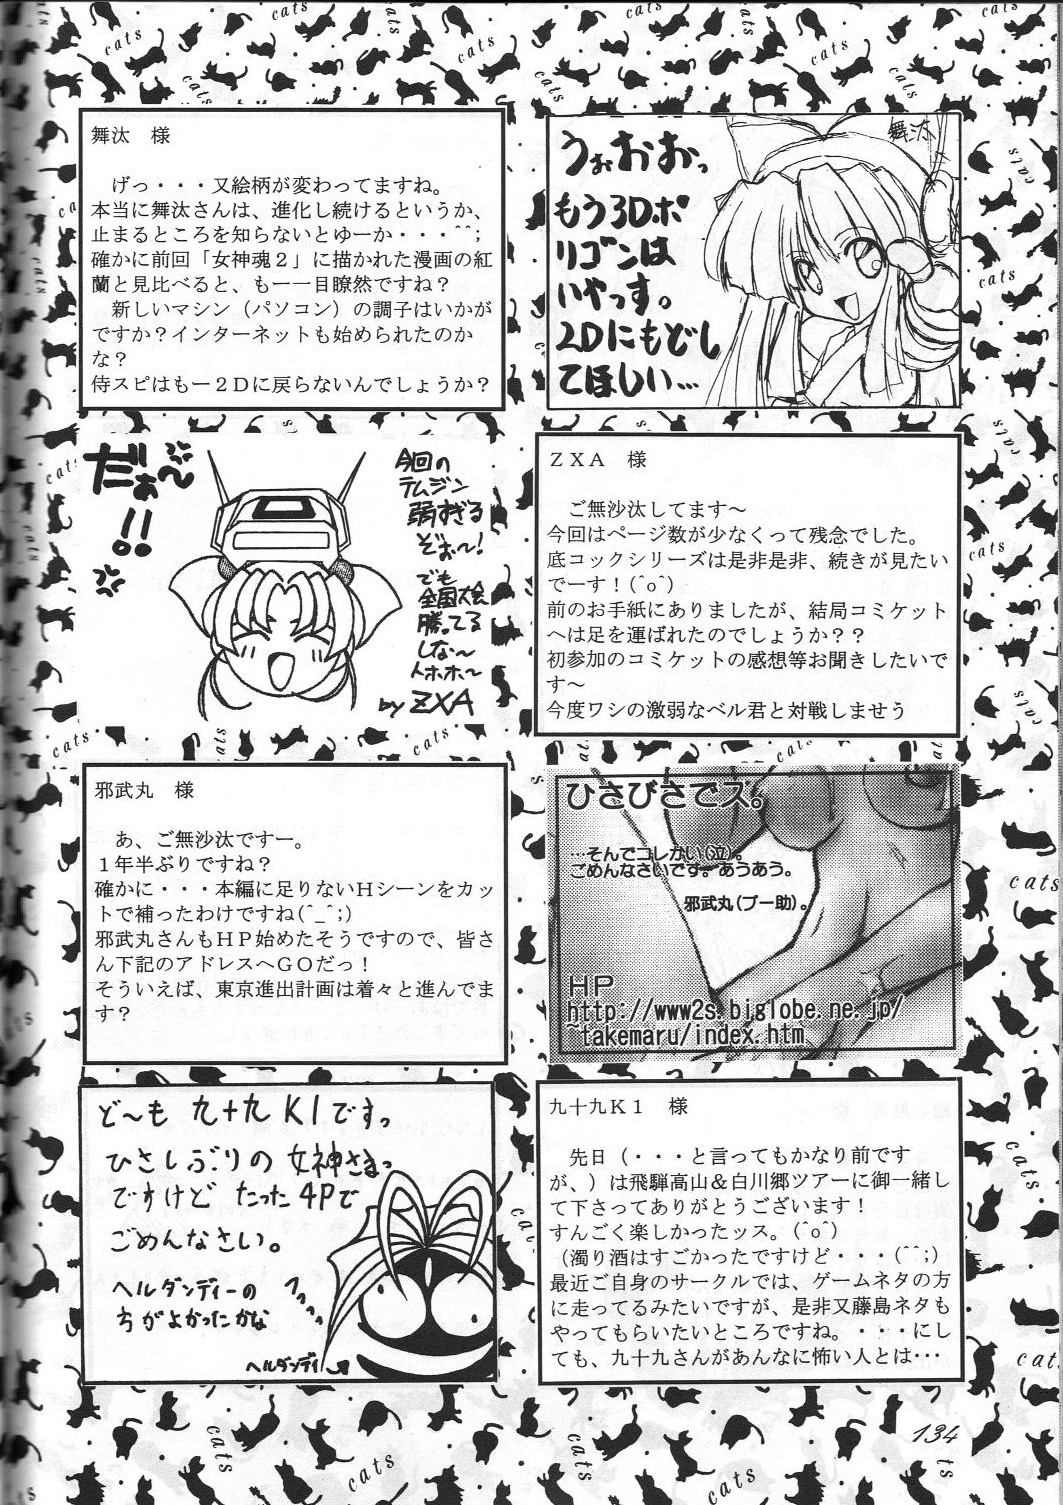 舞汰　様
げっ・・・又絵柄が変わってますね。
本当に舞汰さんは、進化し続けるというか、
止まるところを知らないとゆーか・・・^^;
確かに前回「女神魂２」に描かれた漫画の紅
蘭と見比べると、もー一目瞭然ですね？
新しいマシン（パソコン）の調子はいかが
ですか？インターネットも始められたのか
な？
侍スピはもー２Ｄに戻らないんでしょうか？
舞汰
うぉおおっ
もう3Dポ
リゴンは
いやっす。
2Dにもどし
てほしい…
だぁ〜!!
今回の
テムジン
弱すぎる
ぞぉ〜!
でも
全国大会
勝ってる
しな〜
by ZXA
ＺＸＡ　様
ご無沙汰してます～
今回はページ数が少なくって残念でした。
底コックシリーズは是非是非、続きが見たい
でーす！(^o^)
前のお手紙にありましたが、結局コミケット
へは足を運ばれたのでしょうか？？
初参加のコミケットの感想等お聞きしたいで
す～
今度ワシの激弱なベル君と対戦しませう
邪武丸　様
あ、ご無沙汰ですー。
１年半ぶりですね？
確かに・・・本編に足りないＨシーンをカッ
トで補ったわけですね(^_^;)
邪武丸さんもＨＰ始めたそうですので、皆さ
ん下記のアドレスへＧＯだっ！
そういえば、東京進出計画は着々と進んでま
す？
ひさびさでス。
…そんでコレかい(泣)。
ごめんなさいです。あうあう。
邪武丸(ブー助)。
HP
http://www2s.biglobe.ne.jp/
~takemaru/index.htm
ど〜も 九十九 K1です。
ひさしぶりの 女神さまっ
ですけど たった 4Pで
ごめんなさい。
ヘルダンディーの
方がよかったかな
ヘルダンディ
九十九Ｋ１　様
先日（・・・と言ってもかなり前です
が、）は飛騨高山＆白川郷ツアーに御一緒し
て下さってありがとうございます！
すんごく楽しかったッス。(^o^)
（濁り酒はすごかったですけど・・・(^^;)
最近ご自身のサークルでは、ゲームネタの方
に走ってるみたいですが、是非又藤島ネタも
やってもらいたいところですね。・・・にし
ても、九十九さんがあんなに怖い人とは・・・
134
cats